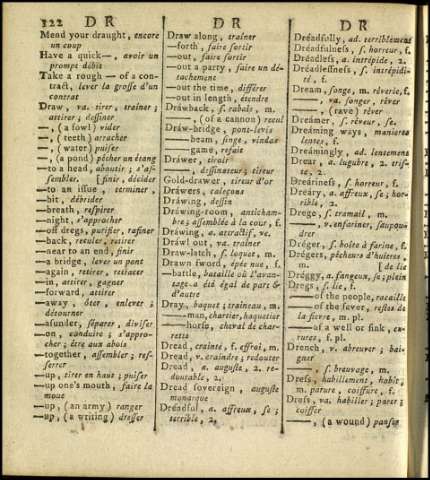 322 D R
D R
D R
Mend your draught, encore
un coup
Have a quick—, avoir un
prompt débit
Take a rough — of a con-
tract, lever la grosse d'un
contrat
Draw, va. tirer, traîner;
attirer; dessiner
—, (a fowl) vider
—, (teeth) arracher
—, (water) puiser
—, (a pond) pêcher un étang
—to a head, aboutir; s'as-
sembler. [finir, décider
—to an issue, terminer,
—bit, débrider
—breath, respirer
—night, s'approcher
—off dregs, purifier, rafiner
—back, reculer, retirer
—near to an end, finir
—a bridge, lever un pont
—again, retirer, retracer
—in, attirer, gagner
—forward, attirer
—away, ôter, enlever;
détourner
—asunder, séparer, diviser
—on, conduire; s'appro-
cher; être aux abois
—together, assembler; res-
serrer
—up, tirer en haut; puiser
—up one's mouth, faire la
moue
—up, (an army) ranger
—up, (a writing) dresser
Draw along, traîner
—forth, faire sortir
—out, faire sortir
—out a party, faire un dé-
tachement
—out the time, différer
—out in length, étendre
Dráwback, s. rabais, m.
—, (of a cannon) recul
Dráw-bridge, pont-levis
—beam, singe, vindas
—game, refait
Dráwer, tiroir
—, dessinateur; tireur
Gold-drawer, tireur d'or
Dráwers, caleçons
Dráwing, dessin
Dráwing-room, anticham-
bre; assemblée à la cour, f.
Dráwing, a. attractif, ve.
Dráwl out, va. traîner
Draw-latch, s. loquet, m.
Drawn sword, épée nue, f.
—battle, bataille où l'avan-
tage a été égal de part &
d'autre
Dray, baquet; traineau, m.
—man, chartier, haquetier
—horse, cheval de char-
rette
Dread, crainte, f. effroi, m.
Dread, v. craindre; redouter
Dread, a. auguste, 2. re-
doutable, 2.
Dread sovereign, auguste
monarque
Dréadful, a. affreux, se;
terrible, 2.
Dréadfully, ad. terriblement
Dréadfulness, s. horreur, f.
Dréadless, a. intrépide, 2.
Dréadlessness, s. intrépidi-
té, f.
Dream, songe, m. rêverie, f.
— va. songer, rêver
—, (rave) rêver
Dreámer, s. rêveur, se.
Dreáming ways, manieres
lentes, f.
Dreámingly, ad. lentement
Drear, a. lugubre, 2. tris-
te, 2.
Dreáriness, s. horreur, f.
Dreáry, a. affreux, se; hor-
rible, 2.
Drege, s. tramail, m.
—, v. enfariner, saupou-
drer
Dréger, s. boîte à farine, f.
Drégers, pêcheurs d'huitres,
m. [de lie
Dréggy, a. fangeux, se; plein
Dregs, s. lie, f.
—of the people, racaille
—of the fever, restes de
la fievre, m. pl.
—of a well or sink, cu-
rures, f. pl.
Drench, v. abreuver; bai-
gner
—, s. breuvage, m.
Dress, habillement, habit,
m. parure, coiffure, f.
Dress, va. habiller; parer;
coiffer
—, (a wound) panser